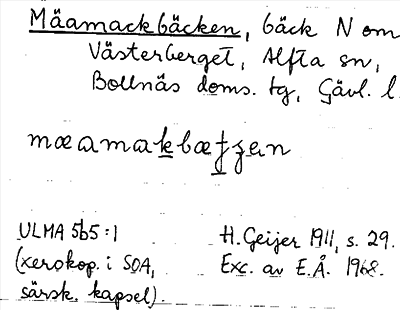 Mäamackbäcken, bäck N om
Västerberget, Alfta sn,
Bollnäs doms. tg, Gävl. l.
mæamakbæʈʒen
ULMA 565:1
(xerokop. i SOA,
särsk. kapsel).
H. Geijer 1911, s. 29.
Exc. av E.Å. 1968.